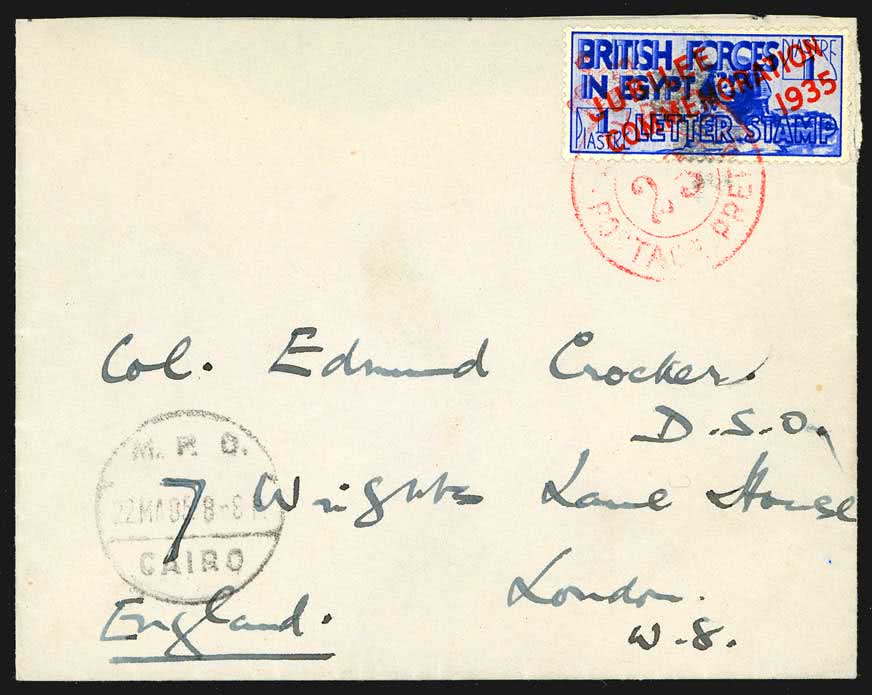 BRITISH FORCES
IN EGYPT
1 PIASTRE
1 PIASTRE
LETTER STAMP
JUBILEE
COMMEMORATION
1935
POSTAGE PREP
Col. Edmund Crocker.
D.S.O.
7 Wrights Lane House
London.
W.8.
England.
M.P.O.
CAIRO